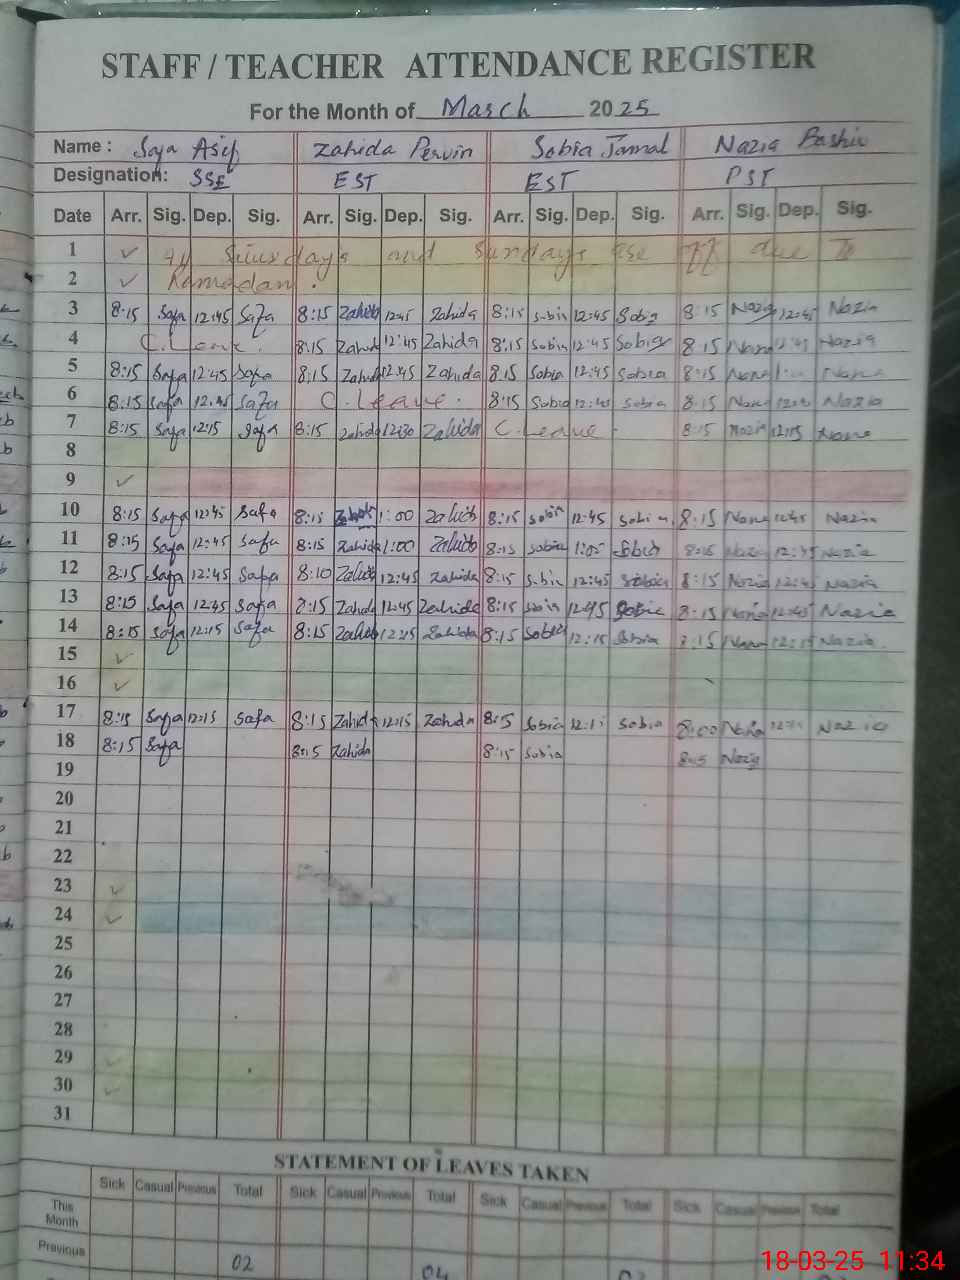 STAFF / TEACHER ATTENDANCE REGISTER
For the Month of March 2025
Name : Safa Asif Zahida Pervin Sobia Jamal Nazia Bashir
Designation: SSE EST EST PST
Date Arr. Sig. Dep. Sig. Arr. Sig. Dep. Sig. Arr. Sig. Dep. Sig. Arr. Sig. Dep. Sig.
1 ✓ days and Sundays are off due To
2 ✓ Ramadan.
3 8:15 Safa 12:45 Safa 8:15 Zahida 12:45 Zahida 8:15 Sobia 12:45 Sobia 8:15 Nazia 12:45 Nazia
4 C.Leave. 8:15 Zahida 12:45 Zahida 8:15 Sobia 12:45 Sobia 8:15 Nazia 12:45 Nazia
5 8:15 Safa 12:45 Safa 8:15 Zahida 12:45 Zahida 8:15 Sobia 12:45 Sobia 8:15 Nazia Nazia
6 8:15 Safa 12:45 Safa C.Leave. 8:15 Sobia 12:45 Sobia 8:15 Nazia Nazia
7 8:15 Safa 12:15 Safa 8:15 Zahida 12:30 Zahida C.Leave 8:15 Nazia 12:15 Nazia
8
9 ✓
10 8:15 Safa 12:45 Safa 8:15 Zahida 1:00 Zahida 8:15 Sobia 12:45 Sobia 8:15 Nazia 12:45 Nazia
11 8:15 Safa 12:45 Safa 8:15 Zahida 1:00 Zahida 8:15 Sobia 1:00 Sobia 8:15 Nazia 12:45 Nazia
12 8:15 Safa 12:45 Safa 8:10 Zahida 12:45 Zahida 8:15 Sobia 12:45 Sobia 8:15 Nazia 12:45 Nazia
13 8:15 Safa 12:45 Safa 8:15 Zahida 12:45 Zahida 8:15 Sobia 12:45 Sobia 8:15 Nazia 12:45 Nazia
14 8:15 Safa 12:15 Safa 8:15 Zahida 12:15 Zahida 8:15 Sobia 12:15 Sobia 8:15 Nazia 12:15 Nazia
15 ✓
16 ✓
17 8:15 Safa 12:15 Safa 8:15 Zahida 12:15 Zahida 8:15 Sobia 12:15 Sobia 8:00 Nazia Nazia
18 8:15 Safa 8:15 Zahida 8:15 Sobia 8:15 Nazia
19
20
21
22
23 ✓
24 ✓
25
26
27
28
29 ✓
30 ✓
31
STATEMENT OF LEAVES TAKEN
Sick Casual Previous Total Sick Casual Previous Total Sick Casual Previous Total Sick Casual Previous Total
This Month
Previous 02 04
18-03-25 11:34